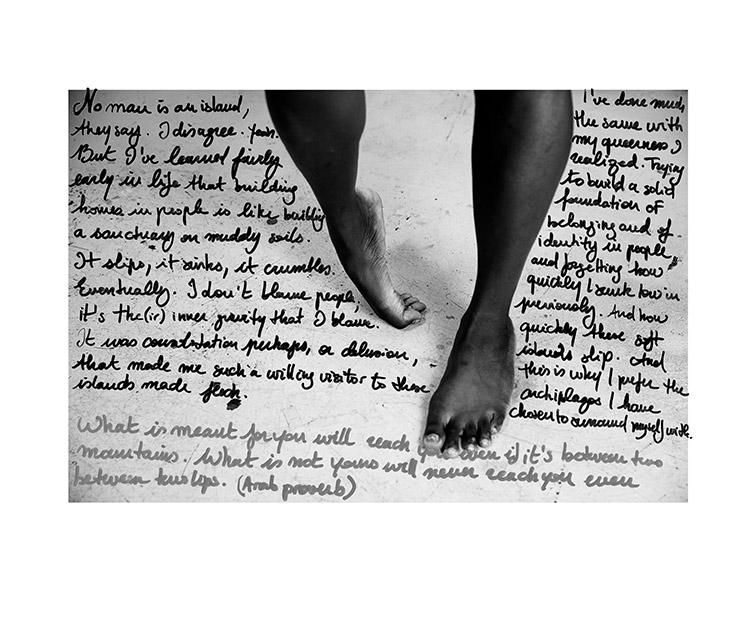 No man is an island,
they say. I disagree. Yeah.
But I've learned fairly
early in life that building
homes in people is like building
a sanctuary on muddy soils.
It slips, it sinks, it crumbles.
Eventually. I don't blame people,
it's the(ir) inner gravity that I blame.
It was consolation perhaps, or delusion,
that made me such a willing visitor to these
islands made flesh.
I've done much
the same with
my queerness, I
realized. Trying
to build a solid
foundation of
belonging and of
identity in people,
and forgetting how
quickly I sunk low in
previously. And how
quickly these soft
islands slip. And
this is why I prefer the
archiplagos I have
chosen to surround myself with.
What is meant for you will reach you even if it's between two
mountains. What is not yours will never reach you even
between two lips. (Arab proverb)